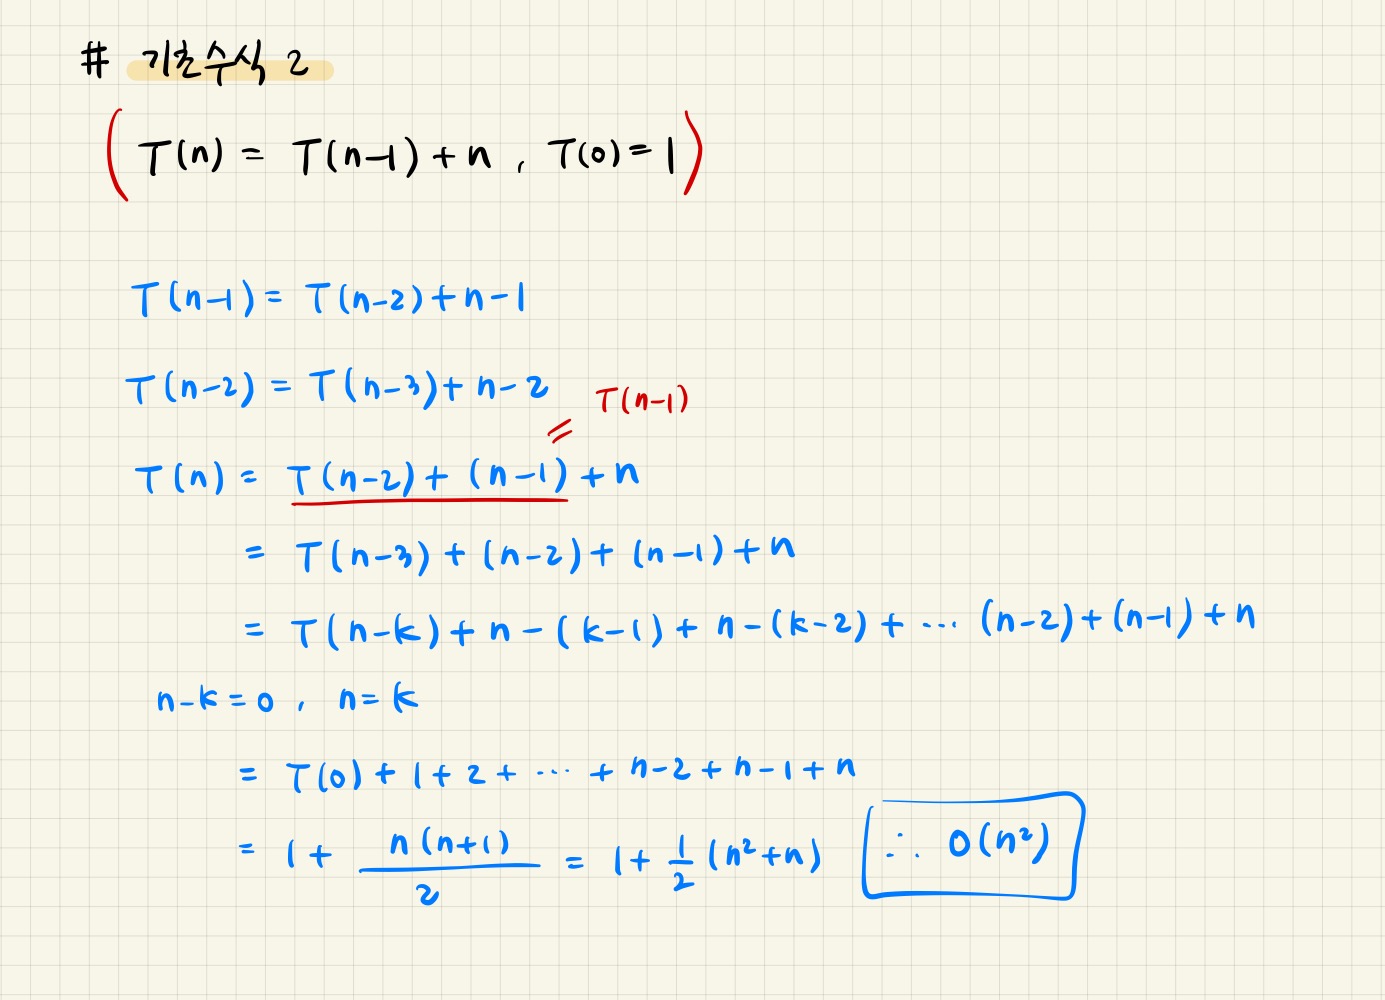 # 기초수식 2
( T(n) = T(n-1) + n , T(0) = 1 )
T(n-1) = T(n-2) + n-1
T(n-2) = T(n-3) + n-2
= T(n-1)
T(n) = T(n-2) + (n-1) + n
= T(n-3) + (n-2) + (n-1) + n
= T(n-k) + n-(k-1) + n-(k-2) + ... (n-2) + (n-1) + n
n-k=0 , n=k
= T(0) + 1 + 2 + ... + n-2 + n-1 + n
= 1 + n(n+1)/2 = 1 + 1/2 (n²+n) ∴ O(n²)